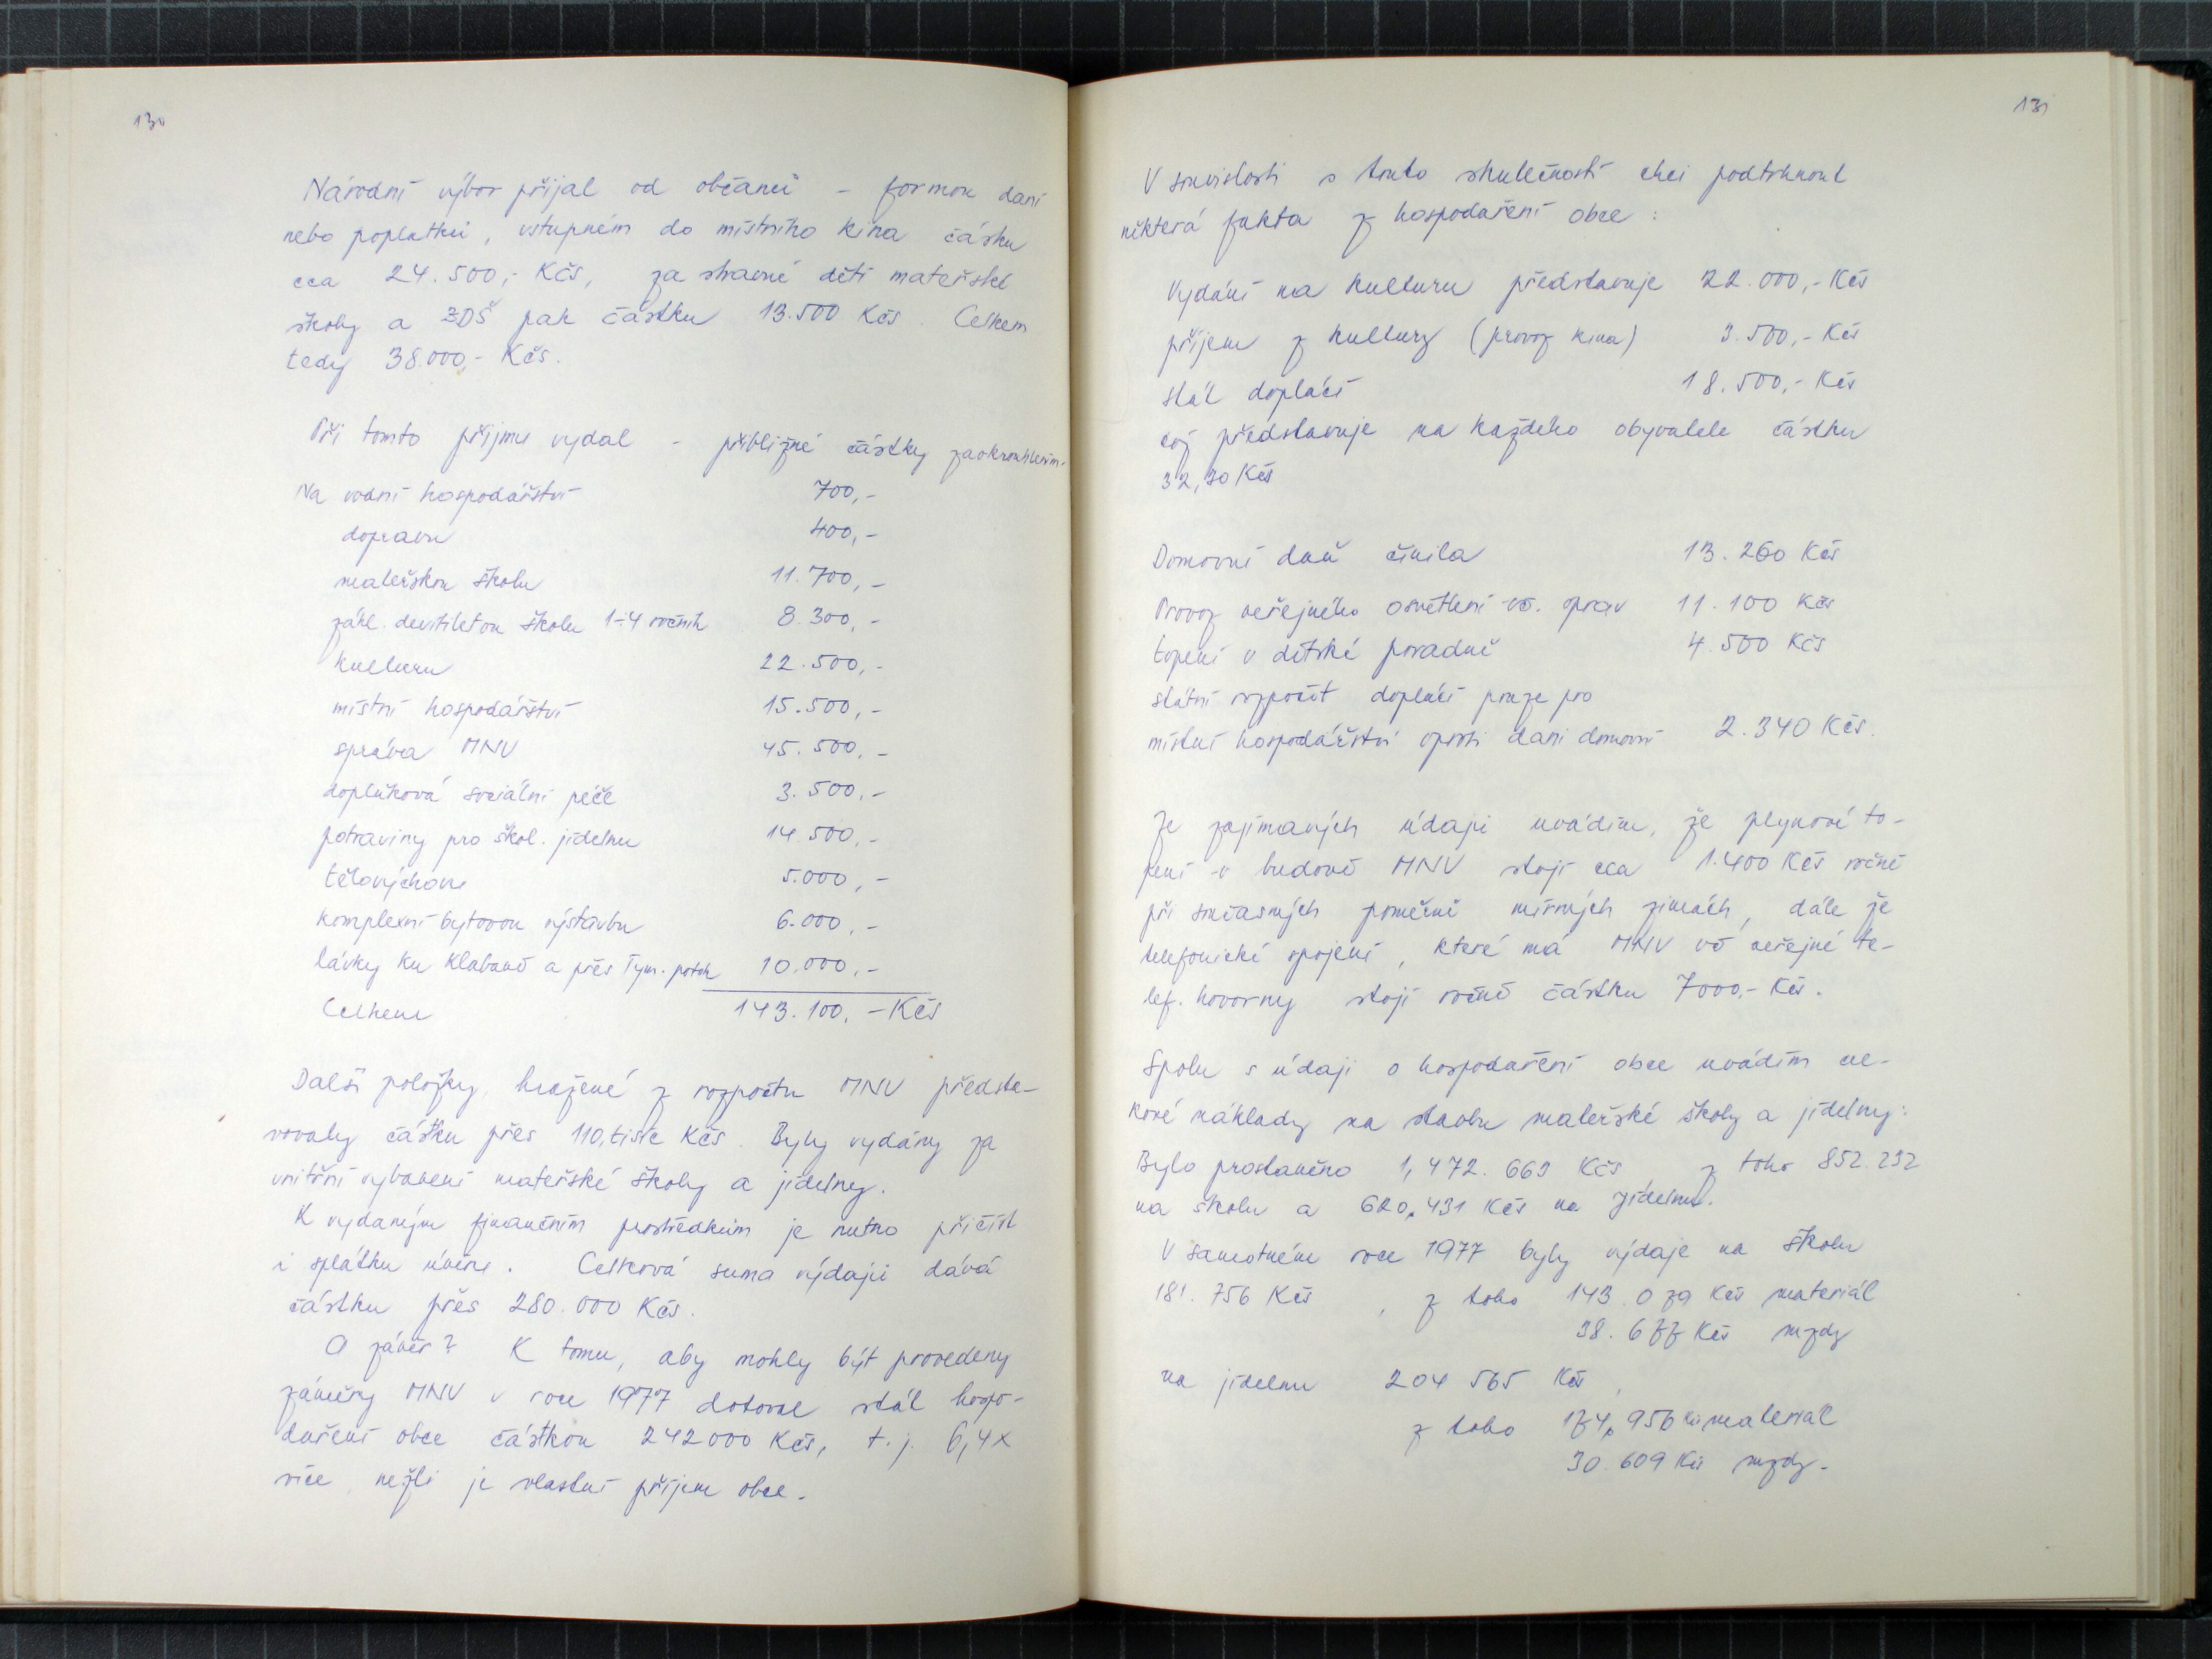 130
Národní výbor přijal od občanů - formou daní
nebo poplatků, vstupném do místního kina částku
cca 24.500,- Kčs, za stravné dětí mateřské
školy a ZDŠ pak částku 13.500 Kčs. Celkem
tedy 38.000,- Kčs.
Při tomto příjmu vydal - přibližné částky zaokrouhlením-
Na vodní hospodářství 700,-
dopravu 400,-
mateřskou školu 11.700,-
zákl. devítiletou školu 1-4 ročník 8.300,-
kulturu 22.500,-
místní hospodářství 15.500,-
správa MNV 45.500,-
doplňková sociální péče 3.500,-
potraviny pro škol. jídelnu 14.500,-
tělovýchovu 5.000,-
komplexní bytovou výstavbu 6.000,-
lávky ku Klabavě a přes Tým. potok 10.000,-
Celkem 143.100,- Kčs
Další položky, hrazené z rozpočtu MNV předsta-
vovaly částku přes 110,tisíc Kčs. Byly vydány za
vnitřní vybavení mateřské školy a jídelny.
K vydaným finančním prostředkům je nutno přičíst
i splátku úvěru. Celková suma výdajů dává
částku přes 280.000 Kčs.
A závěr? K tomu, aby mohly být provedeny
záměry MNV v roce 1977 dotoval stát hospo-
daření obce částkou 242000 Kčs, t.j. 6,4x
více, nežli je vlastní příjem obce.
131
V souvislosti s touto skutečností chci podtrhnout
některá fakta z hospodaření obce:
Vydání na kulturu představuje 22.000,- Kčs
příjem z kultury (provoz kina) 3.500,- Kčs
stát doplácí 18.500,- Kčs
což představuje na každého obyvatele částku
32,30 Kčs
Domovní daň činila 13.260 Kčs
Provoz veřejného osvětlení vč. oprav 11.100 Kčs
topení v dětské poradně 4.500 Kčs
státní rozpočet doplácí pouze pro
místní hospodářství oproti dani domovní 2.340 Kčs.
Ze zajímavých údajů uvádím, že plynové to-
pení v budově MNV stojí cca 1.400 Kčs ročně
při současných poměrně mírných zimách, dále že
telefonické spojení, které má MNV vč veřejné te-
lef. hovorny stojí ročně částku 7000,- Kčs.
Spolu s údaji o hospodaření obce uvádím cel-
kové náklady na stavbu mateřské školy a jídelny:
Bylo prostavěno 1,472.663 Kčs z toho 852.232
na školu a 620.431 Kčs na jídelnu.
V samotném roce 1977 byly výdaje na školu
181.756 Kčs, z toho 143.079 Kčs materiál
38.677 Kčs mzdy
na jídelnu 204 565 Kčs,
z toho 174.956 Kčs materiál
30.609 Kčs mzdy.